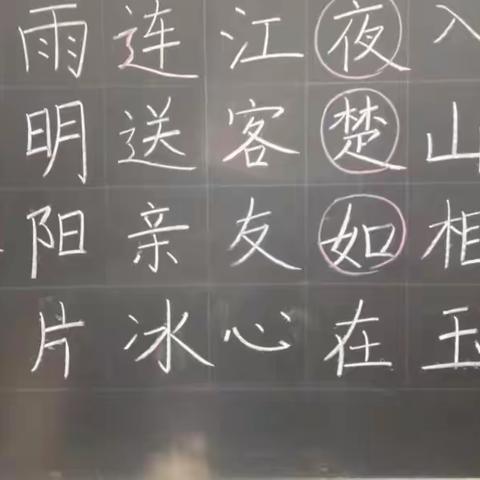 雨连江夜入
明送客楚山
阳亲友如相
片冰心在玉